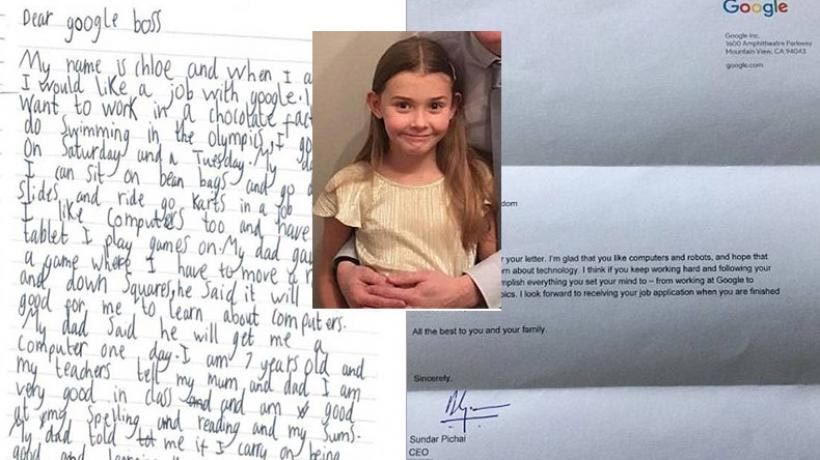 Dear google boss
My name is chloe and when I
I would like a job with google.
Want to work in a chocolate fac
do Swimming in the Olympics, I go
On Saturday and a Tuesday. My
I can sit on bean bags and go
Slides and ride go karts in a job
I like computers too and have
tablet I play games on. My dad
a game where I have to move a
and down Squares, he Said it will
good for me to learn about computers.
My dad Said he will get me a
computer one day. I am 7 years old and
my teachers tell my mum and dad I am
very good in class and and am good
at my Spelling and reading and my Sums.
My dad told me if I carry on being
Google
Google Inc.
1600 Amphitheatre Parkway
Mountain View, CA 94043
google.com
dom
your letter. I'm glad that you like computers and robots, and hope that
rn about technology. I think if you keep working hard and following your
mplish everything you set your mind to – from working at Google to
pics. I look forward to receiving your job application when you are finished
All the best to you and your family.
Sincerely,
Sundar Pichai
CEO